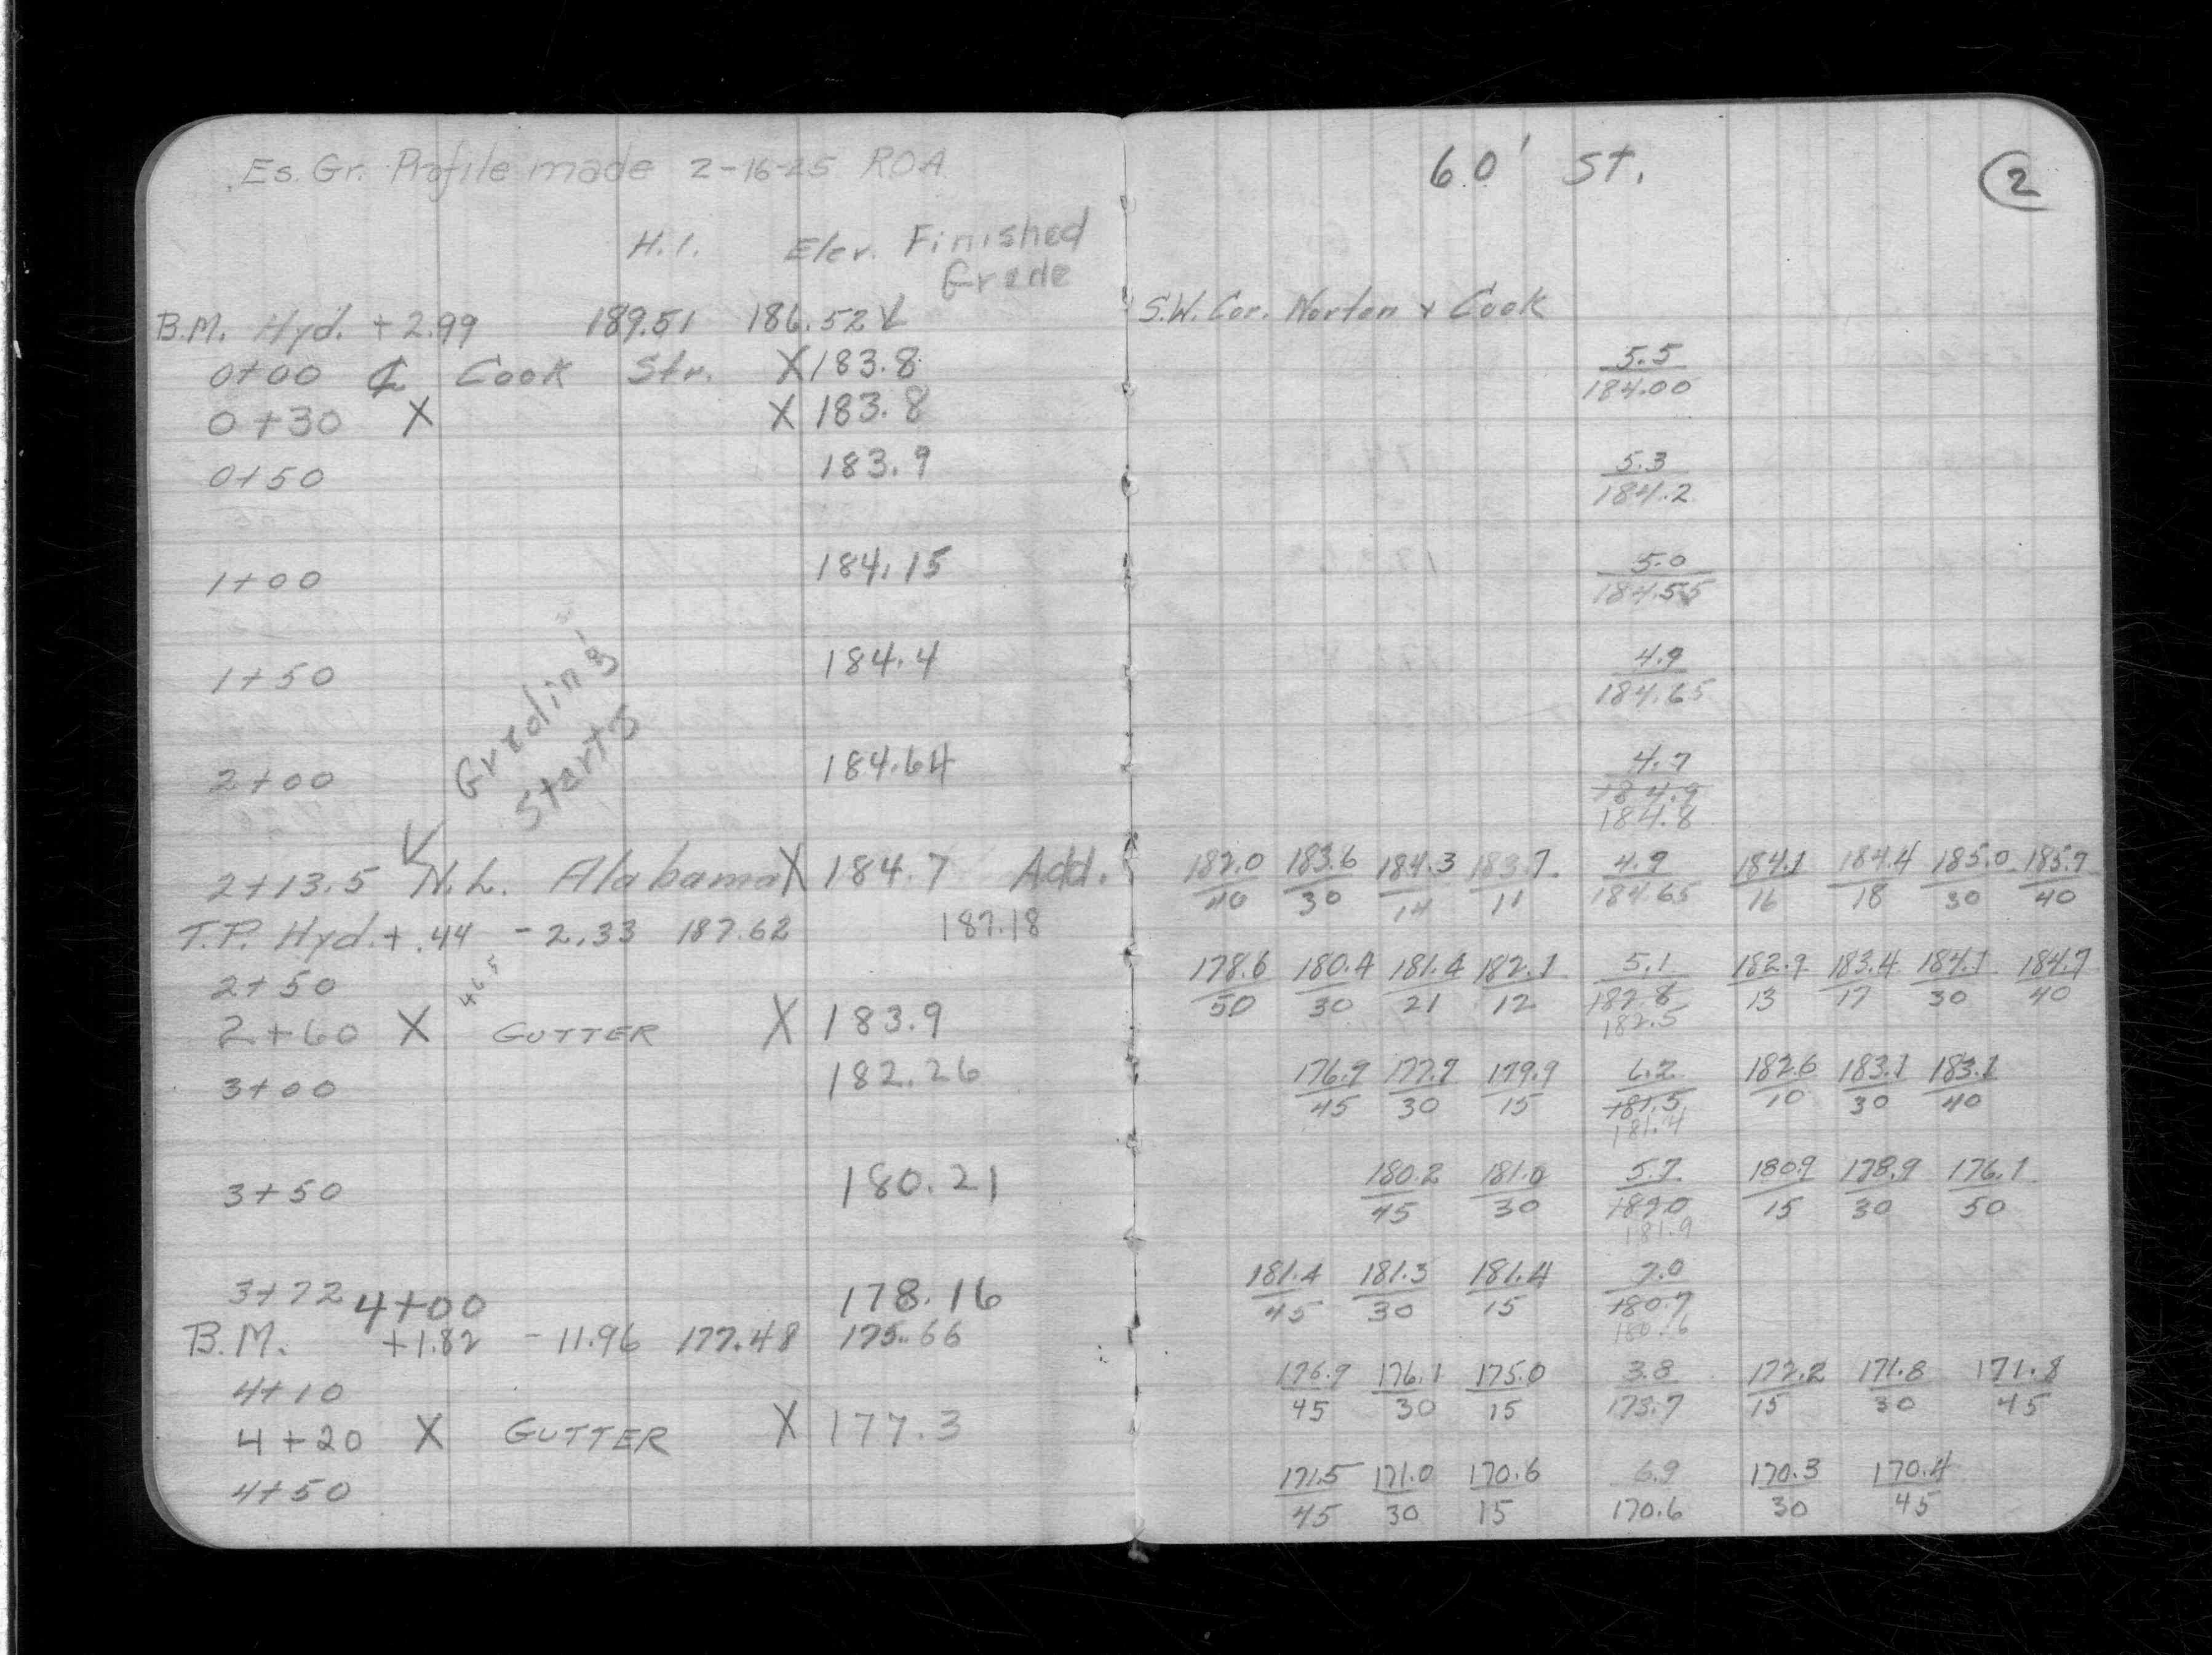 Es. Gr. Profile made 2-16-25 ROA
H.I. Elev. Finished
Grade
B.M. Hyd. + 2.99 189.51 186.52 ✓
0+00 ℄ Cook Str. X 183.8
0+30 X X 183.8
0+50 183.9
1+00 184.15
1+50 184.4
Grading
Starts
2+00 184.64
2+13.5 N.L. Alabama X 184.7 Add.
T.P. Hyd. + .44 - 2.33 187.62 187.18
2+50
2+60 X GUTTER X 183.9
3+00 182.26
3+50 180.21
3+72 4+00 178.16
B.M. +1.82 - 11.96 177.48 175.66
4+10
4+20 X GUTTER X 177.3
4+50
60' St. 2
S.W. Cor. Norton + Cook
5.5
184.00
5.3
184.2
5.0
184.55
4.9
184.65
4.7
184.9
184.8
182.0 183.6 184.3 183.7 4.9 184.1 184.4 185.0 185.7
40 30 14 11 184.65 16 18 30 40
178.6 180.4 181.4 182.1 5.1 182.9 183.4 184.1 184.7
50 30 21 12 182.8 13 17 30 40
182.5
176.7 177.7 179.9 6.2 182.6 183.1 183.1
45 30 15 181.5 10 30 40
181.4
180.2 181.0 5.7 180.9 178.9 176.1
45 30 182.0 15 30 50
181.9
181.4 181.3 181.4 7.0
45 30 15 180.7
180.6
176.7 176.1 175.0 3.8 172.2 171.8 171.8
45 30 15 173.7 15 30 45
171.5 171.0 170.6 6.9 170.3 170.4
45 30 15 170.6 30 45